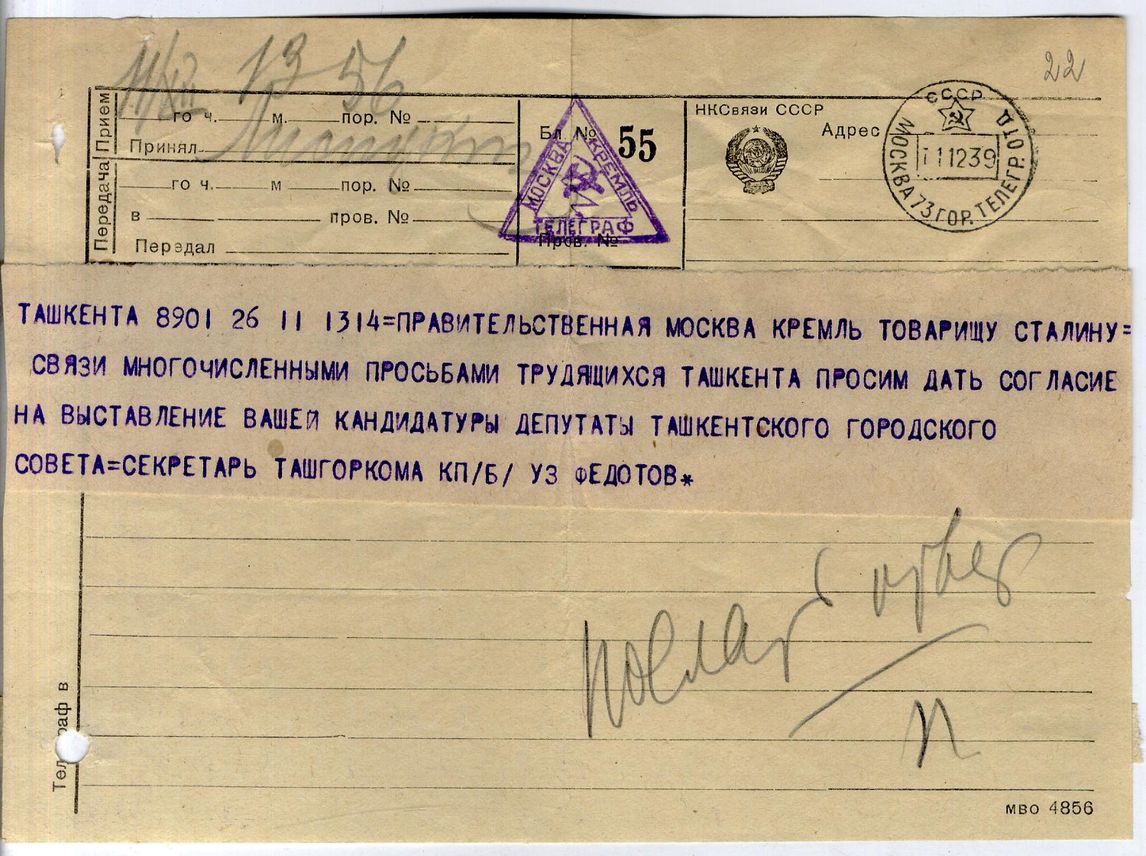 11/XII 13 56
22
Прием
го ч. м. пор. №
Принял
Передача
го ч. м пор. №
в пров. №
Передал
Бл. № 55
МОСКВА КРЕМЛЬ ТЕЛЕГРАФ
Пров. №
НКСвязи СССР
Адрес
СССР
МОСКВА 73 ГОР. ТЕЛЕГР. ОТД
111239
ТАШКЕНТА 8901 26 11 1314=ПРАВИТЕЛЬСТВЕННАЯ МОСКВА КРЕМЛЬ ТОВАРИЩУ СТАЛИНУ=
СВЯЗИ МНОГОЧИСЛЕННЫМИ ПРОСЬБАМИ ТРУДЯЩИХСЯ ТАШКЕНТА ПРОСИМ ДАТЬ СОГЛАСИЕ
НА ВЫСТАВЛЕНИЕ ВАШЕЙ КАНДИДАТУРЫ ДЕПУТАТЫ ТАШКЕНТСКОГО ГОРОДСКОГО
СОВЕТА=СЕКРЕТАРЬ ТАШГОРКОМА КП/Б/ УЗ ФЕДОТОВ*
Телеграф в
МВО 4856